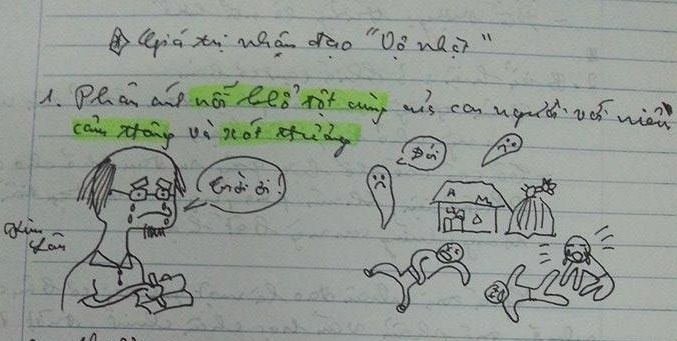 Giá trị nhân đạo "Vợ nhặt"
1. Phản ánh nỗi khổ tột cùng của con người với niềm
cảm thông và xót thương
trời ơi!
Đói
Kim
Lân